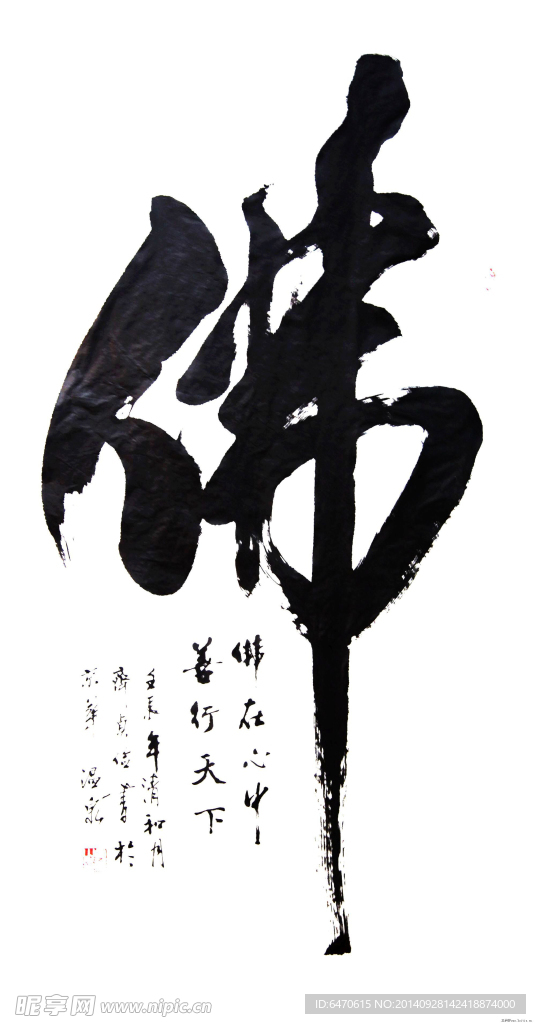 佛
佛在心中
善行天下
壬辰年清和月
齊貞信書於
京華温泉
昵享网 www.nipic.cn
ID:6470615 NO:20140928142418874000